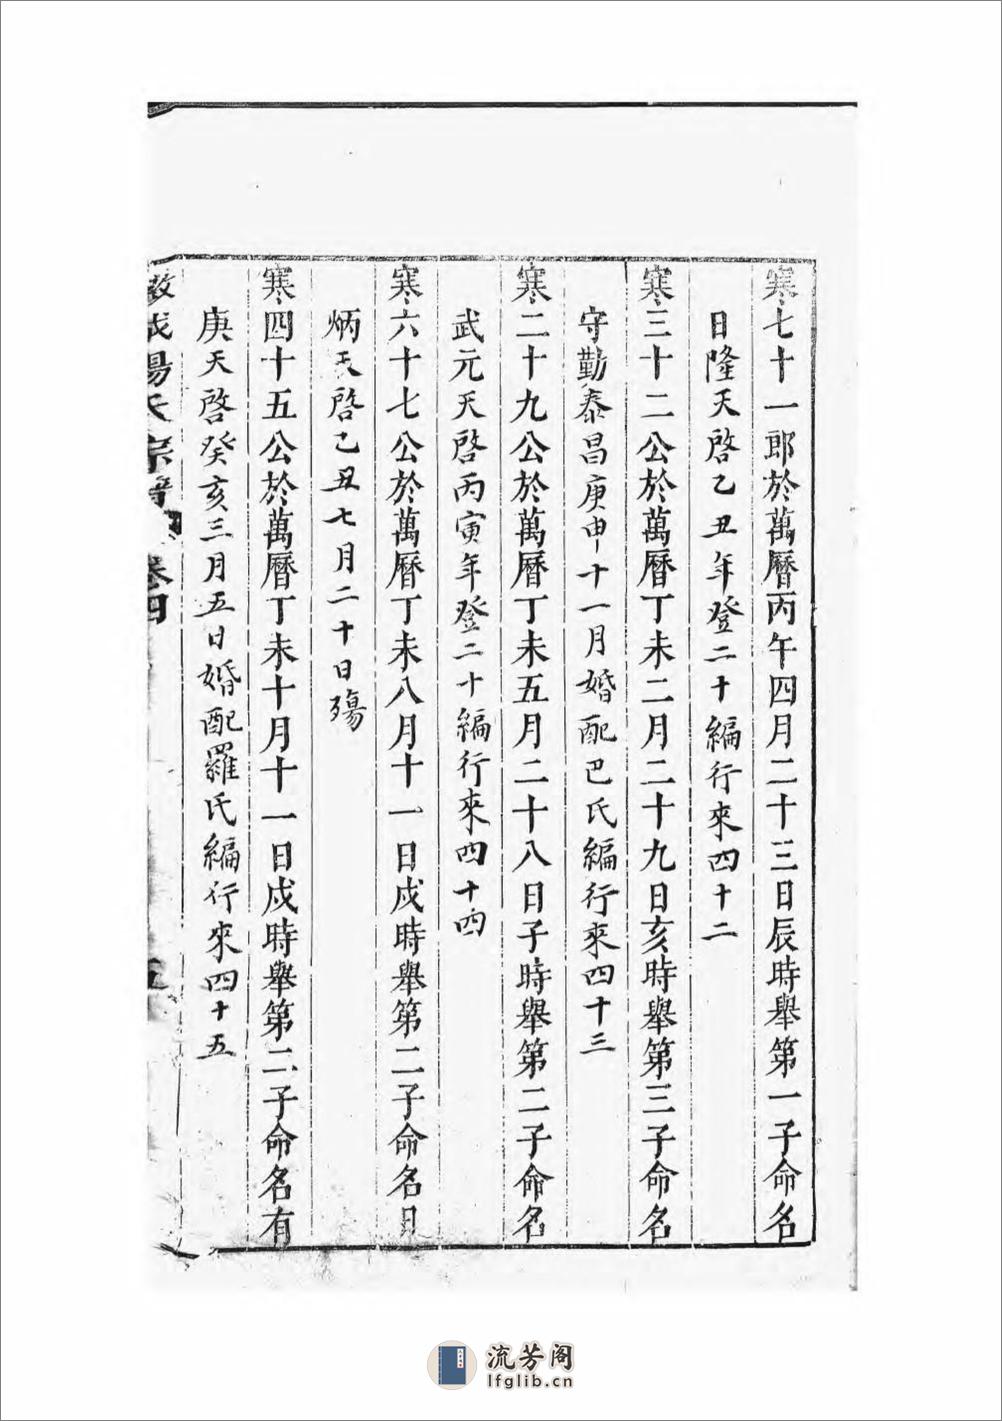 寒七十一郎於萬曆丙午四月二十三日辰時舉第一子命名
日隆天啓乙丑年登二十編行來四十二
寒三十二公於萬曆丁未二月二十九日亥時舉第三子命名
守勤泰昌庚申十一月婚配巴氏編行來四十三
寒二十九公於萬曆丁未五月二十八日子時舉第二子命名
武元天啓丙寅年登二十編行來四十四
寒六十七公於萬曆丁未八月十一日戌時舉第二子命名
炳天啓乙丑七月二十日殤
寒四十五公於萬曆丁未十月十一日戌時舉第二子命名有
庚天啓癸亥三月五日婚配羅氏編行來四十五
宗譜 卷四 五
流芳阁
lfglib.cn